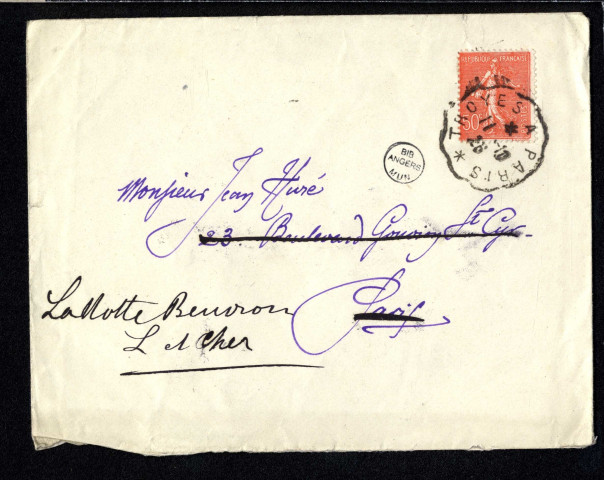 REPUBLIQUE FRANÇAISE
50
TROYES A PARIS
11
28
BIB
ANGERS
MUN
Monsieur Jean Huré
23. Boulevard Gouvion St Cyr.
Paris
La Motte Beuvron
L et Cher